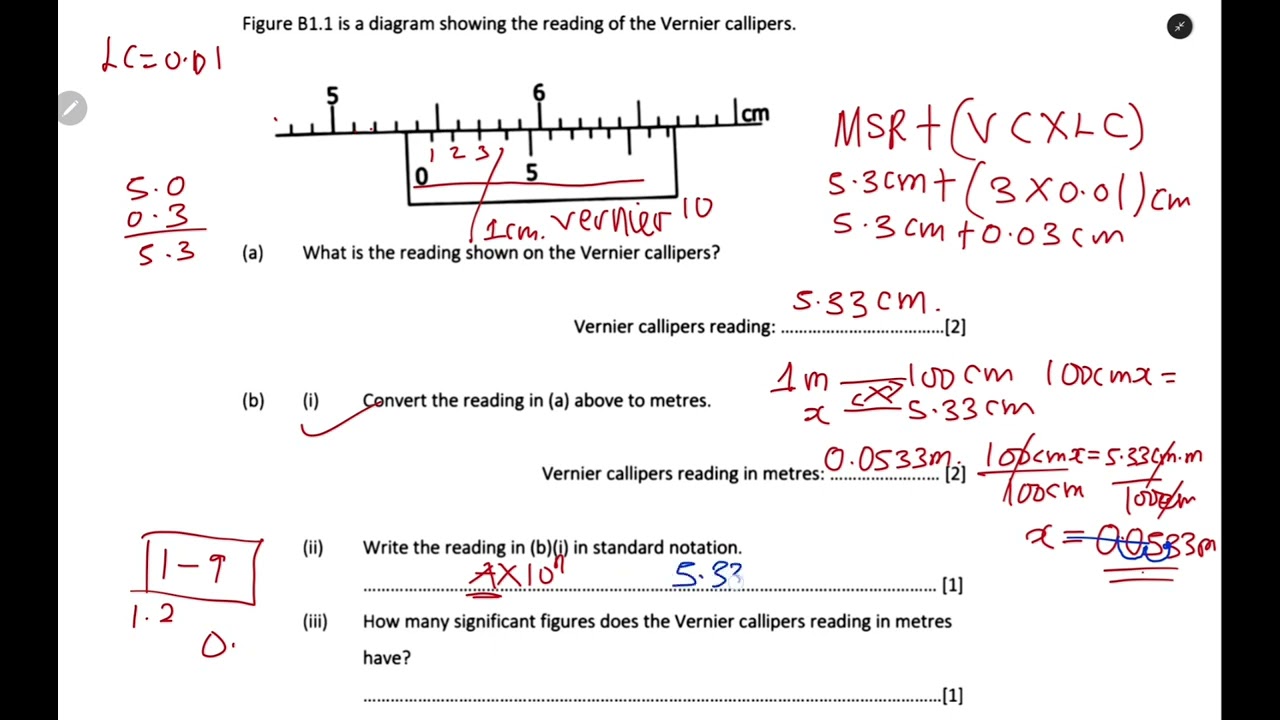 Figure B1.1 is a diagram showing the reading of the Vernier callipers.
LC=0.01
5 6 cm
1 2 3
0 5
1cm. vernier 10
5.0
0.3
5.3
MSR+(VCXLC)
5.3cm+(3X0.01)cm
5.3cm+0.03cm
(a) What is the reading shown on the Vernier callipers?
5.33cm.
Vernier callipers reading: ....................................[2]
1m 100cm 100cmx=
x 5.33cm
(b) (i) Convert the reading in (a) above to metres.
0.0533m. 100cmx=5.33cm.m
Vernier callipers reading in metres: ........................ [2]
100cm 100cm
x=0.0533m
(ii) Write the reading in (b)(i) in standard notation.
1-9
AX10ⁿ 5.33
[1]
1.2
0.
(iii) How many significant figures does the Vernier callipers reading in metres
have?
[1]